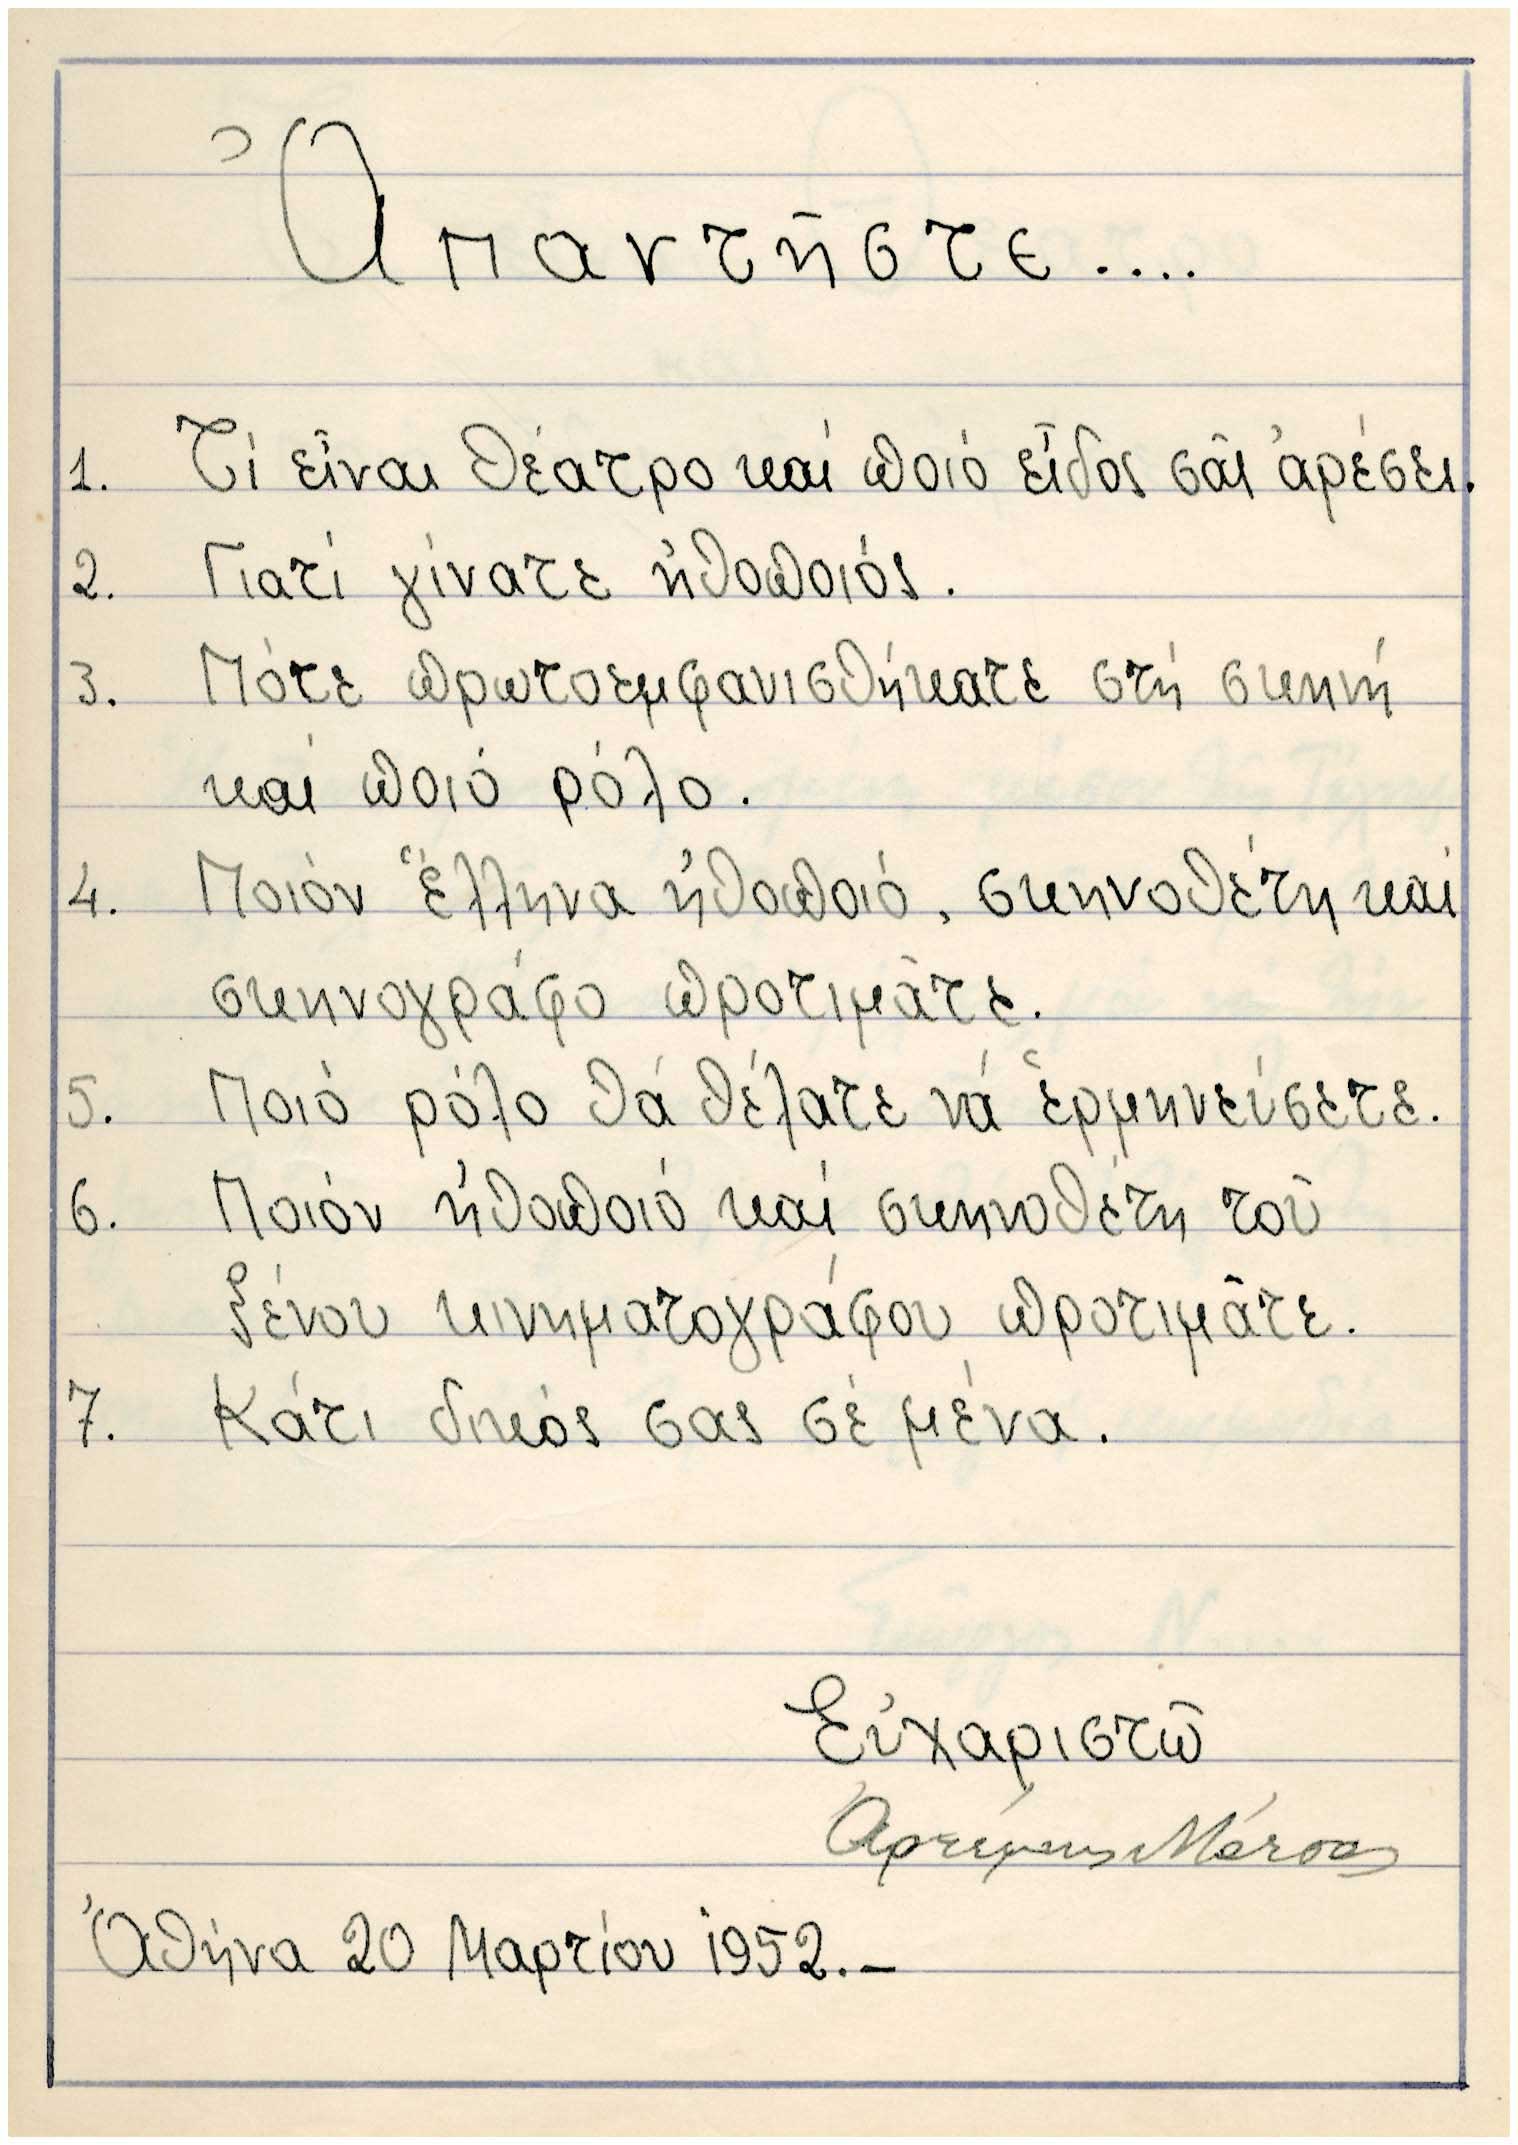 Ἀπαντῆστε....
1. Τί εἶναι θέατρο καί ποιό εἶδος σᾶς ἀρέσει.
2. Γιατί γίνατε ἠθοποιός.
3. Πότε πρωτοεμφανισθήκατε στή σκηνή
καί ποιό ρόλο.
4. Ποιόν ἕλληνα ἠθοποιό, σκηνοθέτη καί
σκηνογράφο προτιμᾶτε.
5. Ποιό ρόλο θά θέλατε νά ἑρμηνεύσετε.
6. Ποιόν ἠθοποιό καί σκηνοθέτη τοῦ
ξένου κινηματογράφου προτιμᾶτε.
7. Κάτι δικός σας σέ μένα.
Εὐχαριστῶ
Ἀθήνα 20 Μαρτίου 1952.-